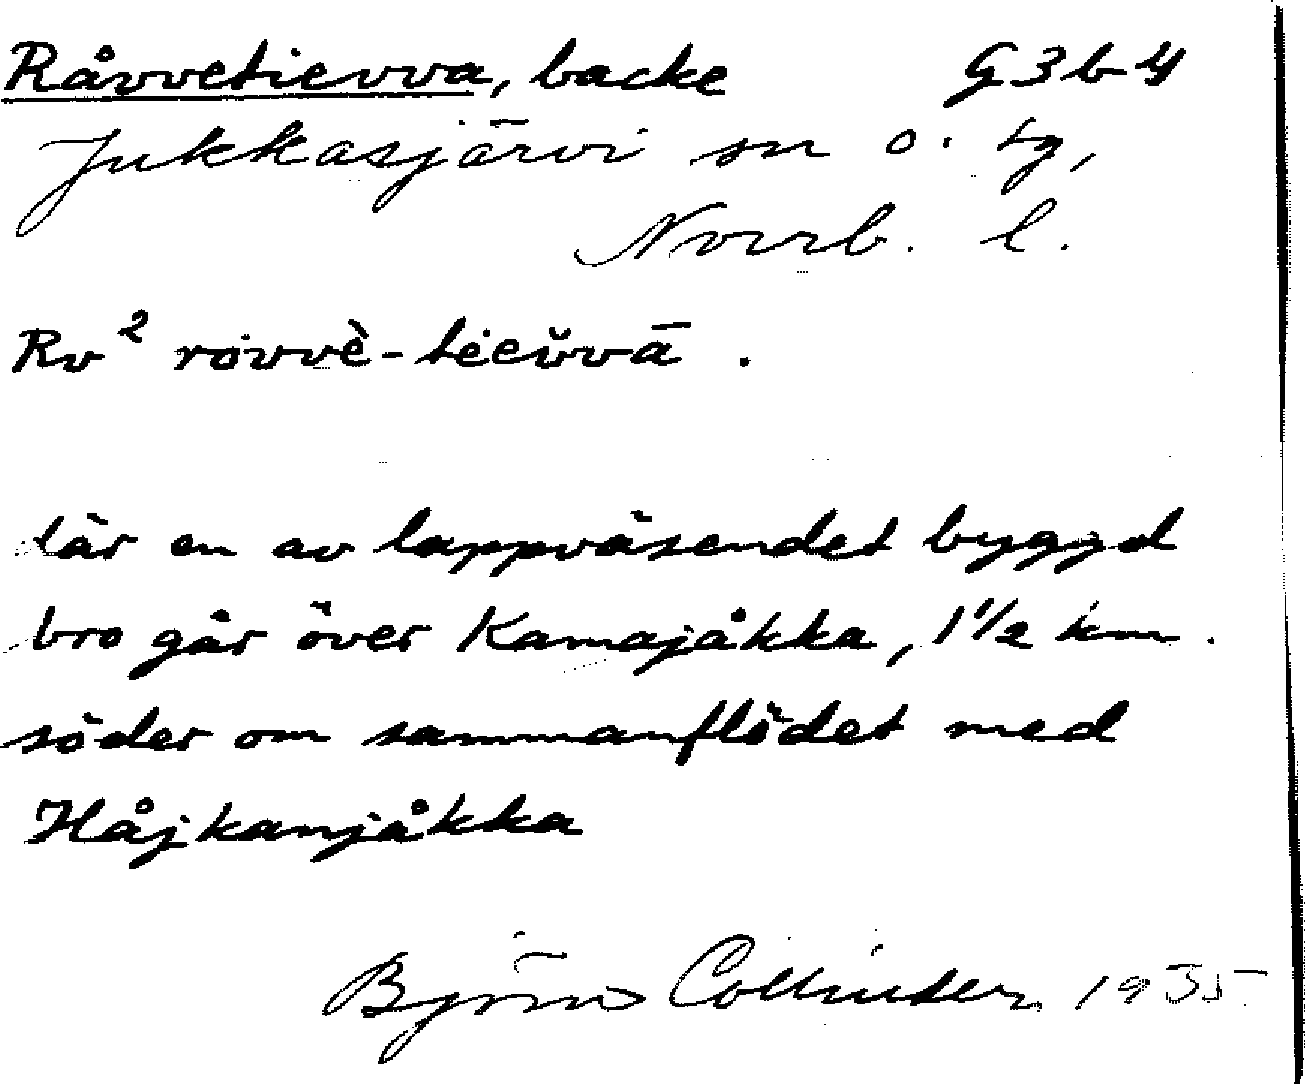 Råvvetievva, backe G3b4
Jukkasjärvi sn o. tg,
Norrb. l.
Rv² rȯvvè-tėev̌vā .
där en av lappväsendet byggd
bro går över Kamajåkka, 1½ km.
söder om sammanflödet med
Håjkamjåkka
Björn Collinder 1935